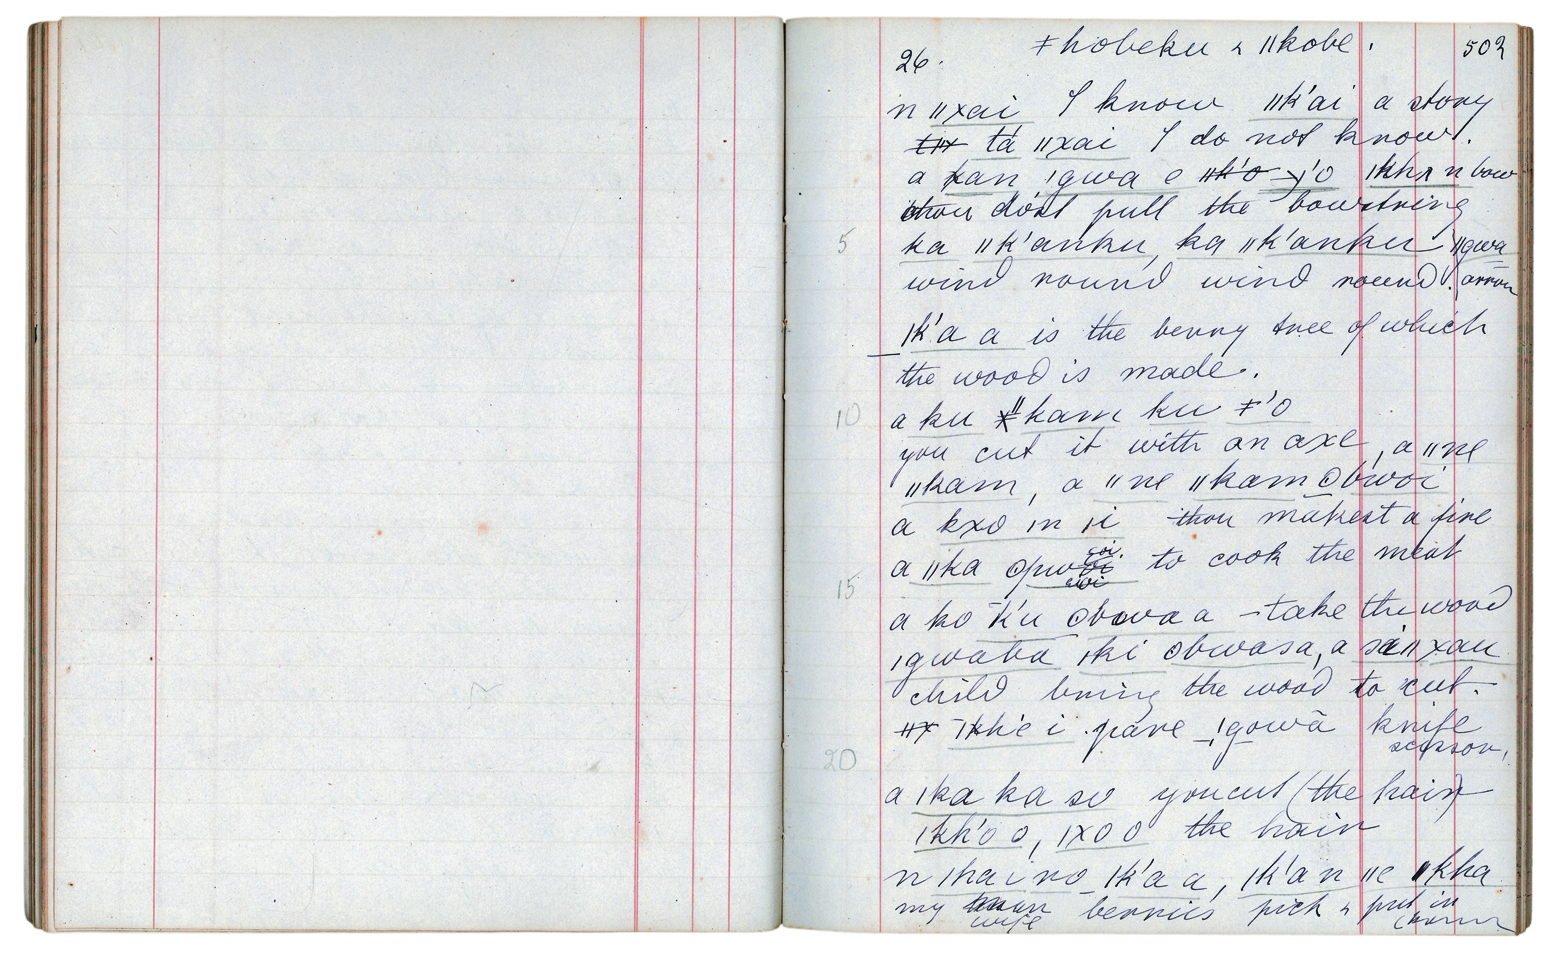 26. ǂhobeku & ǁkobe. 502
n ǁxai I know ǁk'ai a story
tá ǁxai I do not know.
a xan !gwa e ǁk'o ʘ'o ǀkhan bow
thou dost pull the bowstring
5 ka ǁk'anku, ka ǁk'anku ǁgwa
wind round wind round. (arrow
ǀk'a a is the berry tree of which
the wood is made.
10 a ku ǁkam ku ǂ'o
you cut it with an axe, a ǁne
ǁkam, a ǁne ǁkam ʘbwoi
a kxo ǀn ǀi thou makest a fire
a ǁka ʘpwoi to cook the meat
15
a ko k'u ʘbwa a take the wood
ǀgwaba ǀki ʘbwasa, a sá ǁxau
child bring the wood to cut.
ǀkh'e i pare !gowā knife
scissor,
20
a ǀka ka so you cut (the hair)
ǀkk'o o, ǀxo o the hair
n ǀhai no ǀk'a a, ǀk'an ǁe ǁkha
my wife berries pick & put in